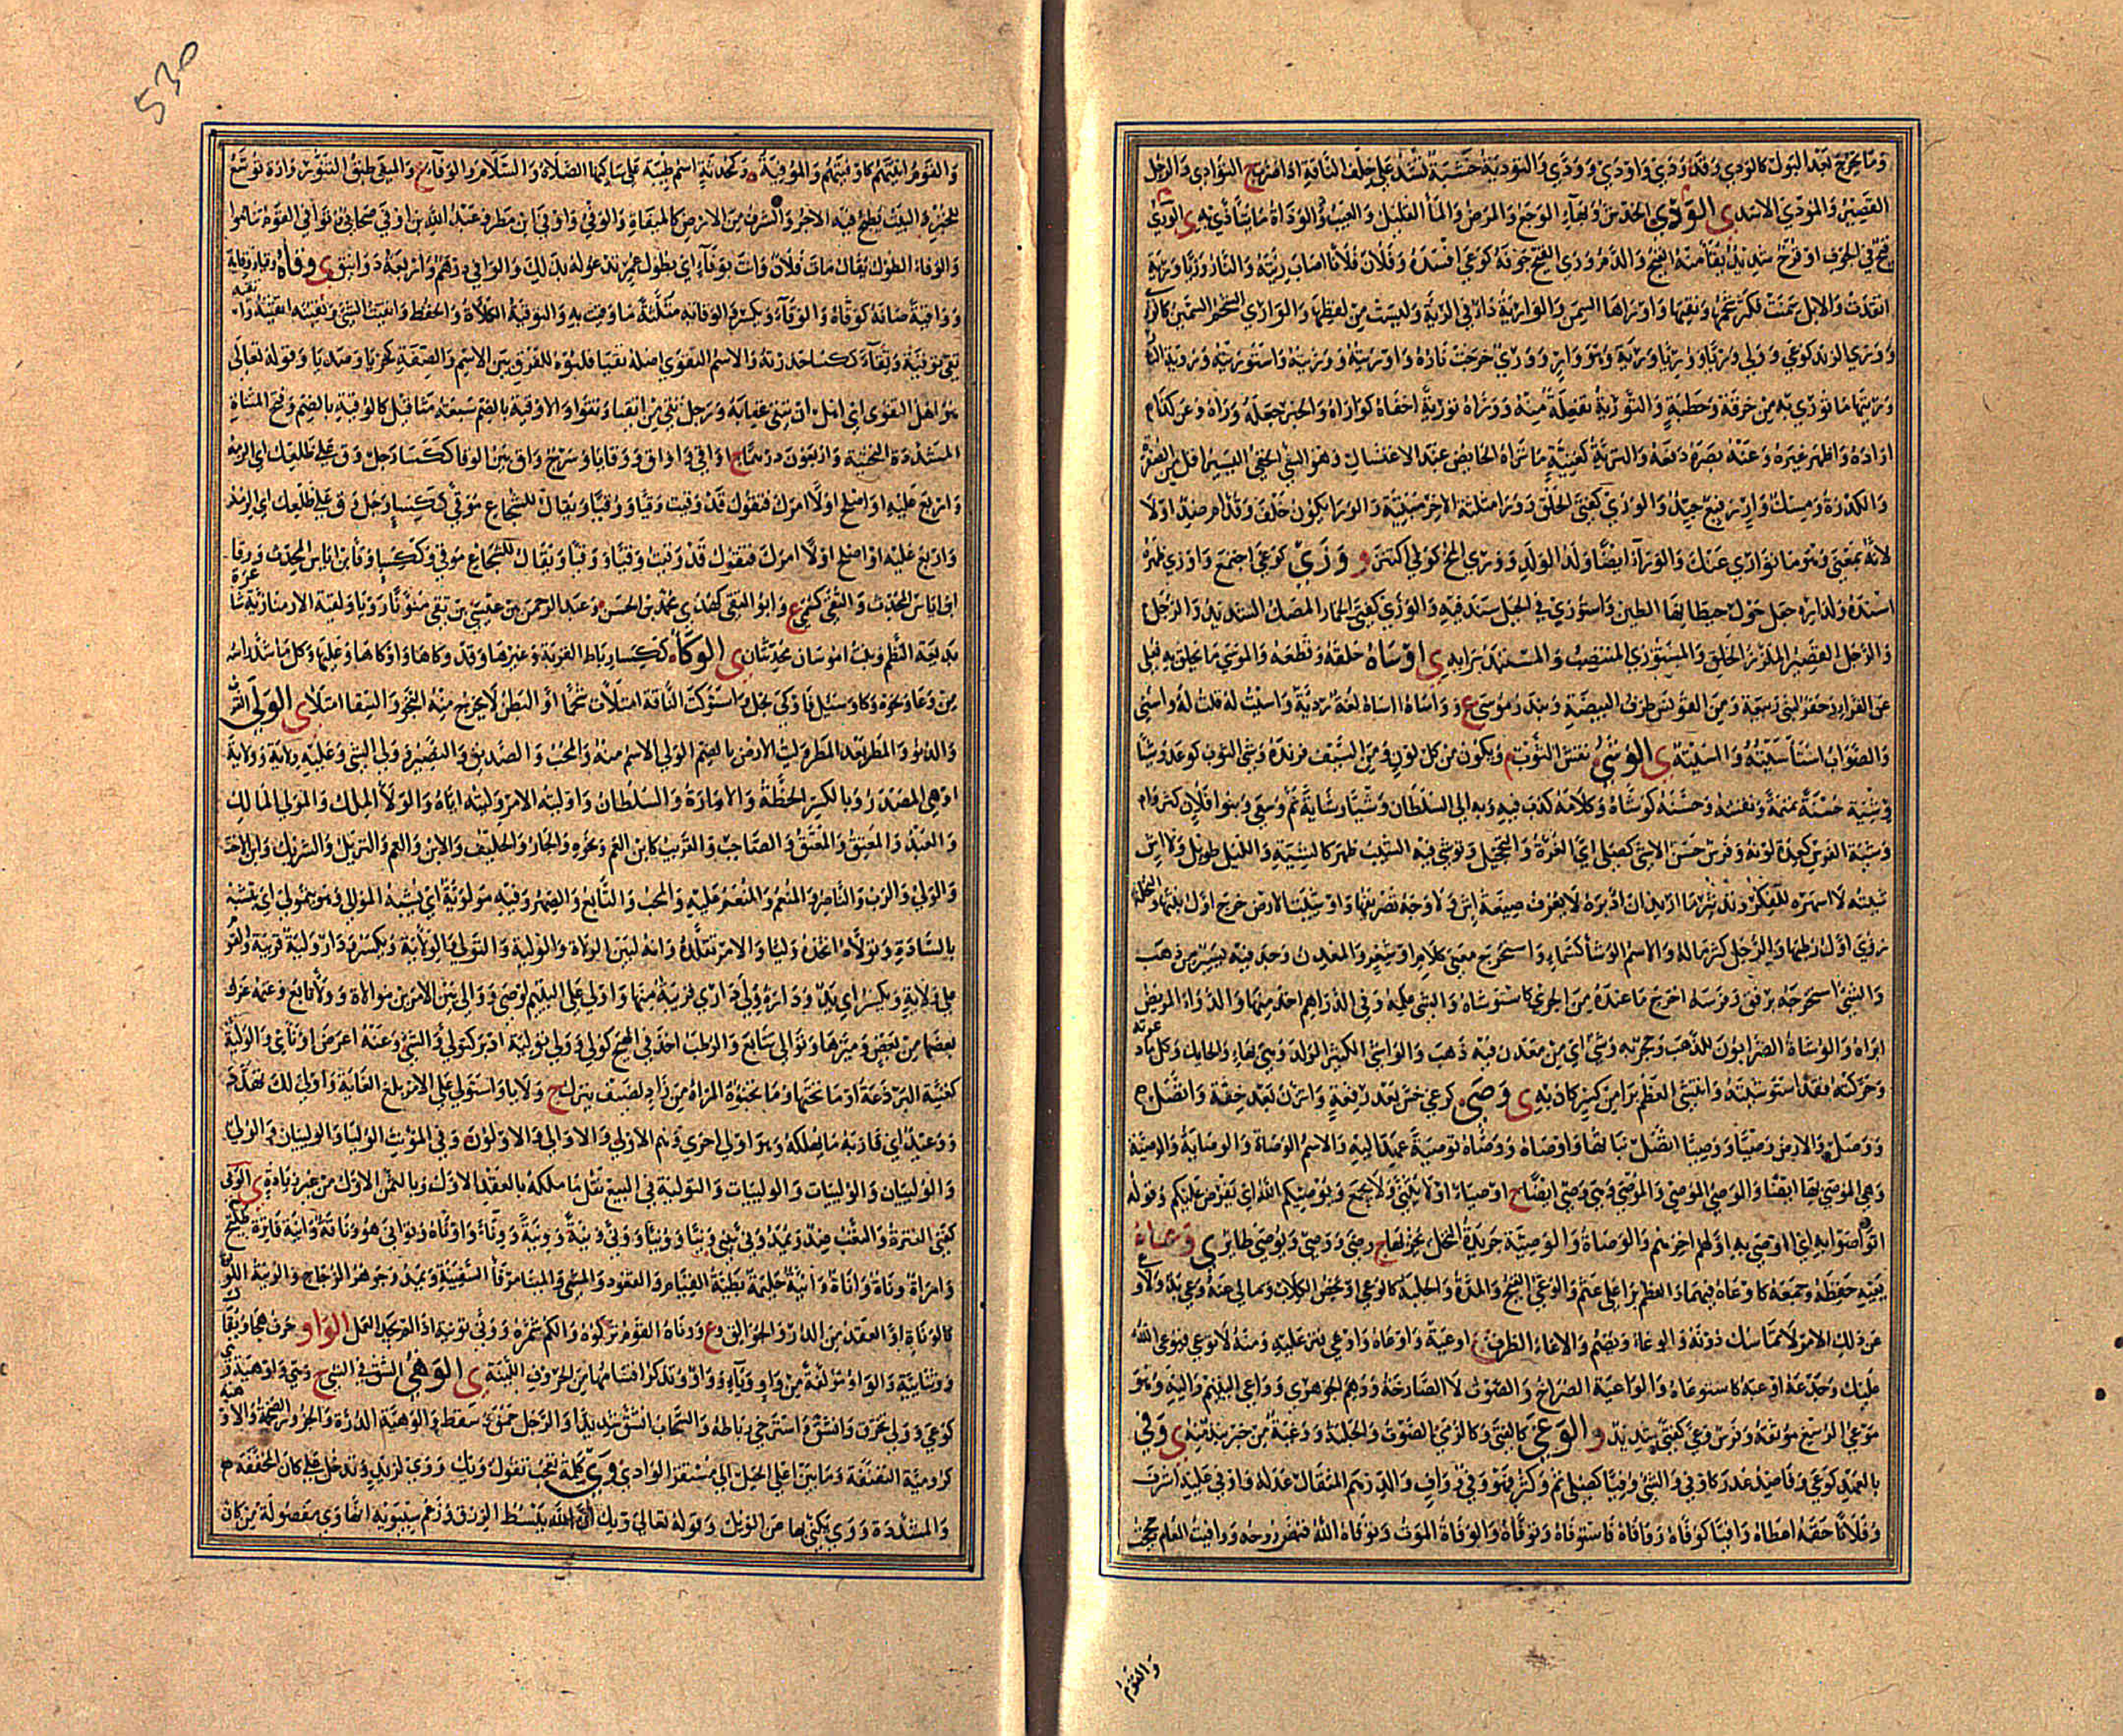 وما يخرج بعد البول كالودي وقد ودي واودي وودي والتودية خشبة تشد على خلف الناقة اذا صرت ج التوادي والرجل
القصير والمودي الاسد ى الوذي الخدش وبقاء الوجع والمرض والماء القليل والعيب والوذاة ما يتأذى به ى الوري
قيح في الجوف او قرح شديد يقاء منه القيح والدم وري القيح جوفه كوعي افسده وفلان فلانا اصاب ريته والنار وريا ورية
اتقدت والابل سمنت فكثر شحمها ونقيها واوراها السمن والوارية داء في الرية وليست من لفظها والواري الشحم السمين كالوري
ووري الزند كوعى وولي وريا ووريا ورية وهو وار ووري خرجت ناره واوريته ووريته واستوريته ورية النار
وريتها ما توري به من خرقة وحطبة والتورية تفعلة منه ووراه تورية اخفاه كواراه والخبر جعله وراه وعن كذا م
اراده واظهر غيره وعنه بصره دفعه والترية كغنية ما تراه الحايض عند الاغتسال وهو الشي الخفي اليسير اقل من الصفرة
والكدرة ومسك وار رفيع جيد والوري كغنى الخلق وورا مثلثة الاخر مبنية والورا يكون خلف وقدام ضد اولا
لانه بمعنى وهو ما توارى عنك والوراء ايضا ولد الولد ووري المخ كولي اكتنز و وزى كوعى اجتمع واوزى ظهره
اسنده ولداره جعل حول حيطانها الطين واستوزى في الجبل سند فيه والوزى كفتى الحمار المصك الشديد والرجل
والرجل القصير الملزز الخلق والمستوزي المنتصب والمستبد برايه ى اوساه حلقه وقطعه والموسى ما يحلق به فعلى
عن الفراء وحفر لبني ربيعة ومن القونس طرف البيضة وبلد وموسى ع وواساه اساه لغة ردية واسيت له قلت له واستي
والصواب استأسيته واسيته ى الوشي نقش الثوب م ويكون من كل لون ومن السيف فرنده وشى الثوب كوعد وشيا
وشية حسنة نمنمه ونقشه وحسنه كوشاه وكلامه كذب فيه وبه الى السلطان وشيا وشاية نم وسعى وبنو فلان كثروا م
وشية الفرس كعدة لونه وفرس حسن الاشي كصلي اي الغرة والتحجيل وتوشى فيه الشيب ظهر كالشية والليل طويل ولا اش
شيته لا اسهره للفكر وتدبير ما اريد ان ادبره لا يعرف صيغة اش ولا وجه تصريفها واوشت الارض خرج اول نبتها والنخلة
رؤي اول رطبها والرجل كثر ماله والاسم الوشاء كسماء واستخرج معنى كلام او شعر والمعدن وجد فيه يسير من ذهب
والشي استخرجه برفق وفرسه اخرج ما عنده من الجري كاستوشاه والشي علمه وفي الدراهم اخذ منها والدواء المريض
ابراه والوشاة الضرابون للذهب وحجر به وشي اي من معدن فيه ذهب والواشي الكثير الولد وهي بهاء والحايك وكل ما دعوته
وحركته فقد استوشيته وانتشى العظم برا من كسر كان به ى وصى كوعى خس بعد رفعة واتزن بعد خفة واتصل م
ووصل والارض وصيا ووصيا اتصل نباتها واوصاه ووصاه توصية عهد اليه والاسم الوصاة والوصاية والوصية
وهي الموصى بها ايضا والوصي الموصي والموصى وهي وصي ايضا ج اوصياء او لا يثنى ولا يجمع ويوصيكم الله اي يفرض عليكم وقوله
اتواصوا به اي اوصى به اولهم اخرهم والوصاة والوصية جريدة النخل يحزم بها ج وصى ووصي ويوصى طائر ى وعاه
يعيه حفظه وجمعه كاوعاه فيهما والعظم برا على عثم والوعي القيح والمدة والجلبة كالوعى او يخص الكلاب وما لي عنه وعي بد ولا و
عن ذلك الامر لا تماسك دونه والوعاء ويضم والاعاء الظرف ج اوعية واوعاه واوعى عليه قتر عليه ومنه لا توعي فيوعي الله
عليك وجدعه اوعبه كاستوعاه والواعية الصراخ والصوت لا الصارخة ووهم الجوهري وواعي اليتيم واليه وهو
موعي الرسغ موثقه وفرس وعى كفتى شديد و الوغى كالفتى وكالرمي الصوت والجلبة ووغية من خير نبذة منه ى وفى
بالعهد كوعى وفاء ضد غدر كاوفى والشي وفيا كصلي تم وكثر فهو وفي وواف والدرهم المثقال عدله واوفى عليه اشرف
وفلانا حقه اعطاه وافيا كوفاه ووافاه فاستوفاه وتوفاه والوفاة الموت وتوفاه الله قبض روحه ووافيت العام حججت
والقوم
530
والقوم اتيتهم كاوفيتهم والموفية وكمحدثة اسم طيبة على ساكنها الصلاة والسلام والوفاء ع والميفى طبق التنور وارة توسع
للخبز والبيت يطبخ فيه الاجر والشرف من الارض كالميفاة والوفي واوفى ابن مطر وعبد الله بن ابي اوفى صحابي وتوافى القوم تتاموا
والوفاء الطول يقال مات فلان وانت بوفاء اي بطول عمر تدعو له بذلك والوافي درهم واربعة دوانيق ى وقاه وقيا ووقاية
وواقية صانه كوقاه والوقاء ويكسر والوقاية مثلثة ما وقيت به والتوقية الكلاءة والحفظ واتقيت الشي وتقيته اتقيه
تقى وتقية وتقاء ككساء حذرته والاسم التقوى اصله تقيا قلبوه للفرق بين الاسم والصفة كخزيا وصديا وقوله تعالى
هو اهل التقوى اي اهل ان يتقى عقابه ورجل تقي من اتقياء وتقواء والاوقية بالضم سبعة مثاقيل كالوقية بالضم وفتح المثناة
المشددة التحتية واربعون درهما ج اواقي واواق ووقايا وسرج واق بين الوقاء ككساء ورجل وق على ظلعك اي الزمه
واربع عليه او اصلح اولا امرك فتقول قد وقيت وقيا ووقيا ويقال للشجاع موقى وككساء رجل وق على ظلعك اي الزمه
واربع عليه او اصلح اولا امرك فتقول قد وقيت وقيا ووقيا ويقال للشجاع موقى وككساء وقاء بن اياس المحدث ووقا
ابن اياس المحدث والتقى كعني ع وابو التقى كهدي محمد بن الحسن وعبد الرحمن بن عيسى بن تقي منونا رويا ولقية الارمنازية شاعرة
بديعة النظم وبنت اموسان محدثتان ى الوكاء ككساء رباط القربة وغيرها وقد وكاها واوكاها وعليها وكل ما شد راسه
من وعاء ونحوه وكاء وسئل فاوكى بخل واستوكت الناقة امتلات شحما او البطن لا يخرج منه النجو والسقاء امتلا ى الولي القرب
والدنو والمطر بعد المطر وليت الارض بالضم والولي الاسم منه والمحب والصديق والنصير وولي الشي وعليه ولاية وولاية
او هي المصدر وبالكسر الخطة والامارة والسلطان واوليته الامر وليته اياه والولاء الملك والمولى المالك
والعبد والمعتق والمعتق والصاحب والقريب كابن العم ونحوه والجار والحليف والابن والعم والنزيل والشريك وابن الاخت
والولي والرب والناصر والمنعم والمنعم عليه والمحب والتابع والصهر وفيه مولوية اي يشبه الموالي وهو يتمولى اي يتشبه
بالسادة وتولاه اتخذه وليا والامر تقلده وانه لبين الولاءة والولية والتولي والولاية ويكسر ودار ولية قريبة والقوم
على ولاية ويكسر اي يد وداره ولي داري قريبة منها واولى على اليتيم اوصى ووالى بين الامرين موالاة وولاء تابع وغنمه عزل
بعضها من بعض وميزها وتوالى تتابع والرطب اخذ في الهيج كولي وولى تولية ادبر كتولى والشي وعنه اعرض او نأى والولية
كغنية البرذعة او ما تحتها وما تخبؤه المراة من زاد لضيف ينزل ج ولايا واستولى على الامر بلغ الغاية واولى لك تهدد
ووعيد اي قاربه ما يهلكه وهو اولى احرى وهم الاولى والاوالي والاولون وفي المؤنث الوليا والولييان والولى
والولييان والولييات والولييات والتولية في البيع نقل ما ملكه بالعقد الاول وبالثمن الاول من غير زيادة ى الونى
كفتى الفترة والتعب ضد ويمد ونى يني ونيا وونيا وونى ونية وونية ووناء واوناه وتوانى هو وناقة وانية فاترة طليح
وامراة وناة واناة وانية حليمة بطيئة القيام والقعود والمشي والمينا مرفأ السفينة ويمد وجوهر الزجاج والونية اللؤلؤة
كالوناة او العقد من الدر والجوالق وع ووناه القوم تركوه والكم شمره وونى تونية اذا لم يجد العمل الواو حرف هجا ويقال
وو ثنايية والواو مؤلفة من واو وياء وواو وتذكر اقسامها من الحروف اللينة ى الوهي الشق في الشي ج وهي واوهية
كوعى وولي تخرق وانشق واسترخى رباطه والسحاب انشق شديدا والرجل حمق وسقط والوهية الدرة والجزور الضخمة والاوهية
كروميه النفنفة وما بين اعلى الجبل الى مستقر الوادي وي كلمة تعجب تقول ويك ووي لزيد وتدخل على كان المخففة م
والمشددة ووي يكنى بها عن الويل وقوله تعالى ويك ان الله يبسط الرزق وزعم سيبويه انها وي مفصولة من كان